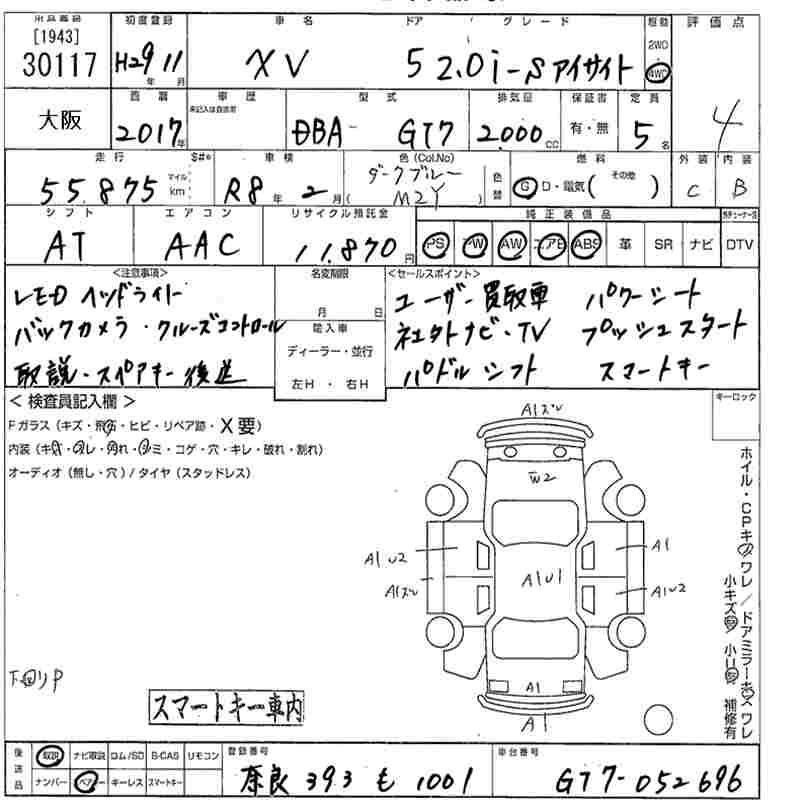 [1943]
30117
初度登録 H29年 11月
車名 XV
ドア 5
グレード 2.0i-S アイサイト
駆動 2WD 4WD
評価点 4
大阪
西暦 2017年
車歴
未記入は自家用
型式 DBA- GT7
排気量 2000cc
保証書 有・無
定員 5名
走行 55.875 マイル km
S#*
車検 R8年 2月
色(Col.No) ダークブルー ( M2Y )
色替
燃料 G D・電気( その他 )
外装 C
内装 B
シフト AT
エアコン AAC
リサイクル預託金 11.870円
純正装備品
PS PW AW エアB ABS 革 SR ナビ DTV
<注意事項>
LED ヘッドライト
バックカメラ・クルーズコントロール
取説・スペアキー後送
名変期限
月 日
輸入車
ディーラー・並行
左H・右H
<セールスポイント>
ユーザー買取車 パワーシート
社外ナビ・TV プッシュスタート
パドルシフト スマートキー
<検査員記入欄>
Fガラス(キズ・飛石・ヒビ・リペア跡・X要)
内装(キズ・スレ・汚れ・シミ・コゲ・穴・キレ・破れ・割れ)
オーディオ(無し・穴)/タイヤ(スタッドレス)
キーロック
A1ズレ
W2
A1U2
A1
A1ズレ
A1U1
A1U2
A1
A1
ホイル・CPキズ ワレ/ドアミラーキズ ワレ
小キズ有/小U有 補修有
下回りP
スマートキー車内
後送品
取説 ナビ取説 ロム/SD B-CAS リモコン
ナンバー スペアキー キーレス スマートキー
登録番号 奈良 393 も 1001
車台番号 GT7-052696